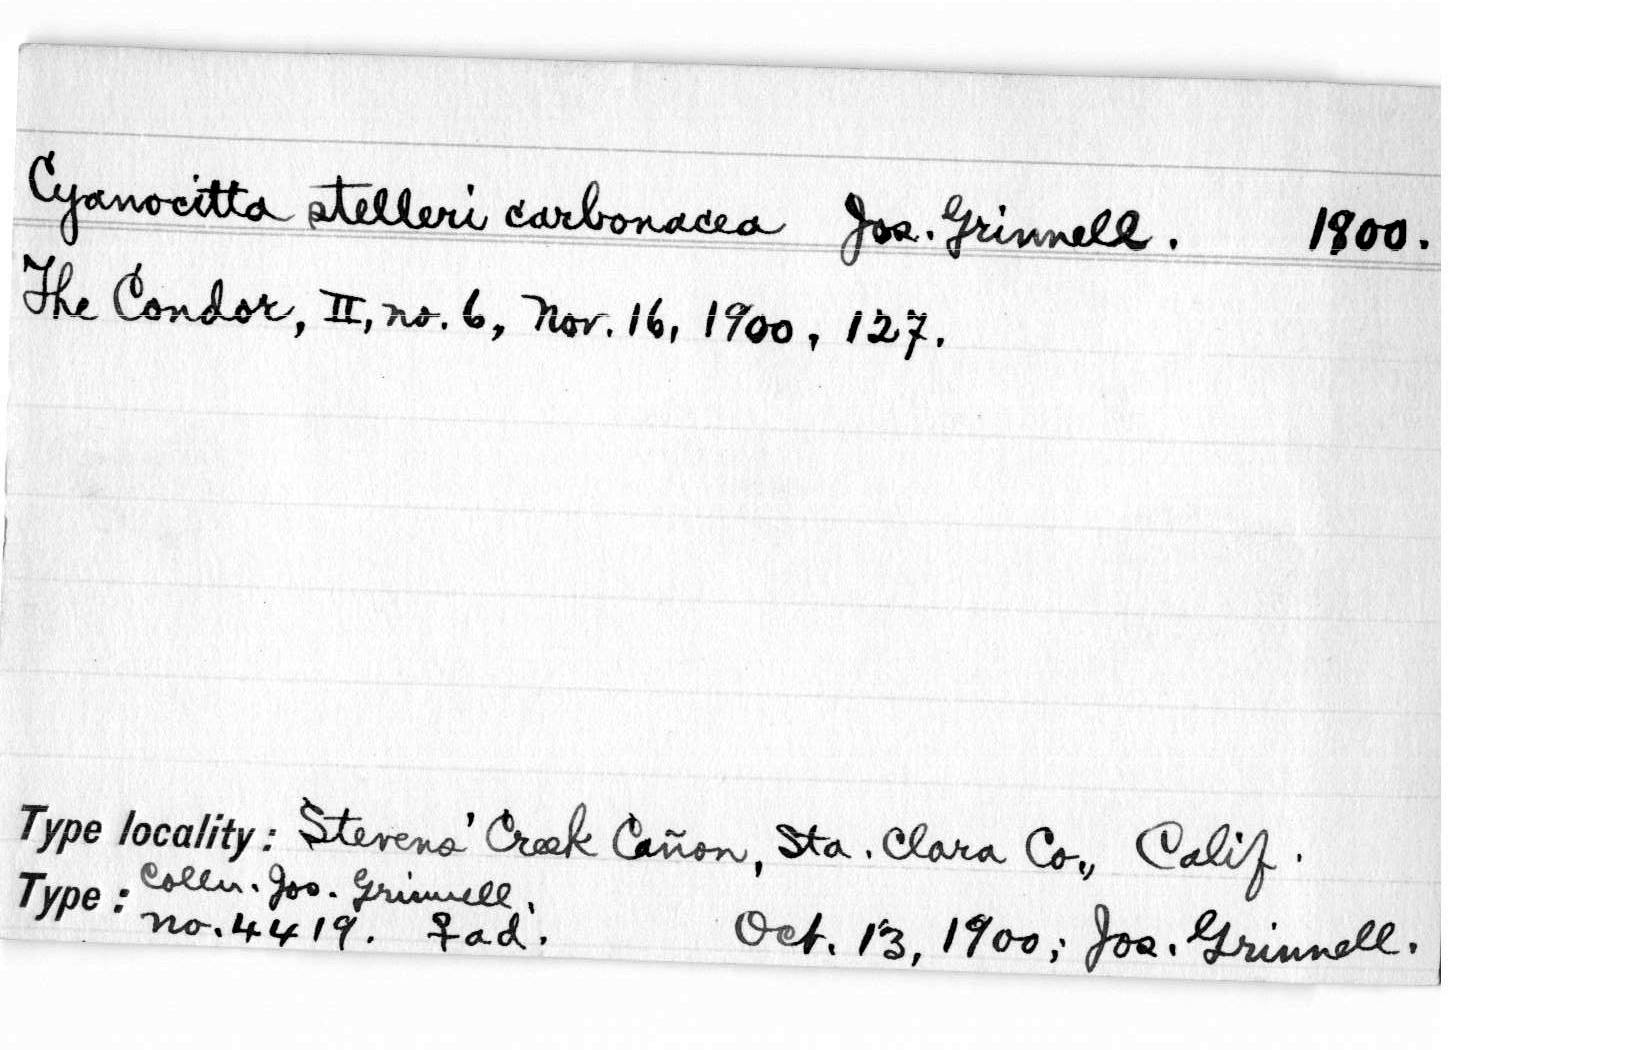 Cyanocitta stelleri carbonacea Jos. Grinnell. 1900.
The Condor, II, no. 6, Nov. 16, 1900, 127.
Type locality: Stevens' Creek Cañon, Sta. Clara Co., Calif.
Type: Colln. Jos. Grinnell,
no. 4419. ♀ ad. Oct. 13, 1900; Jos. Grinnell.